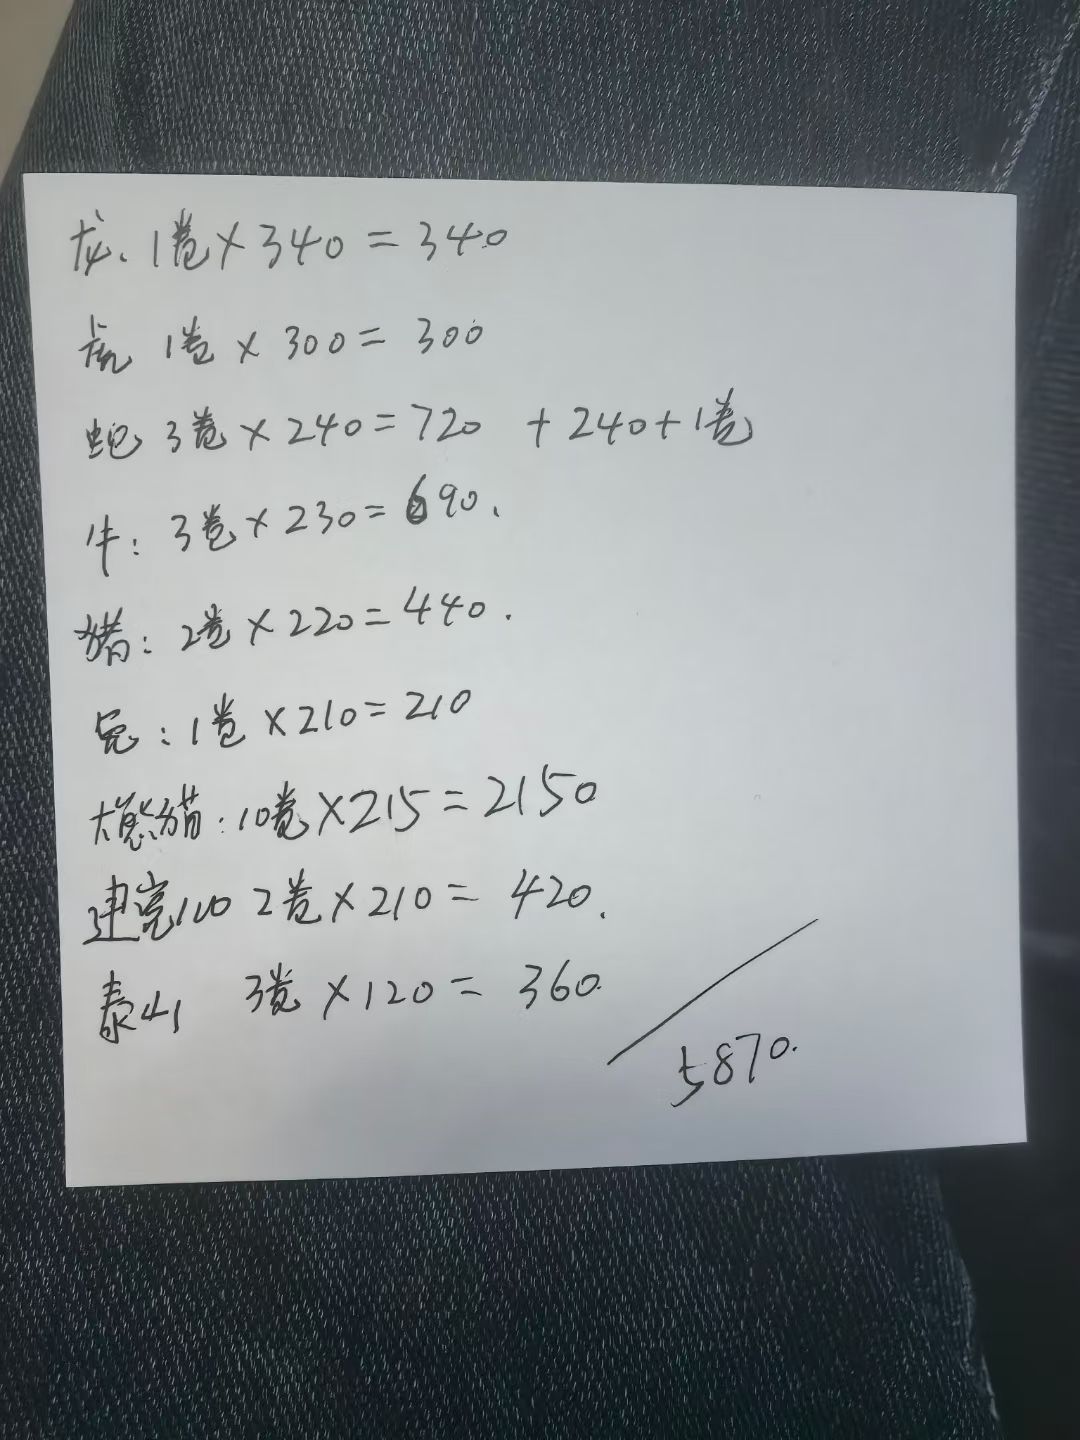 龙、1卷×340=340
虎 1卷×300=300
蛇 3卷×240=720 +240+1卷
牛：3卷×230=690、
猪：2卷×220=440.
兔：1卷×210=210
大熊猫：10卷×215=2150
建党100 2卷×210=420、
泰山 3卷×120=360.
5870.